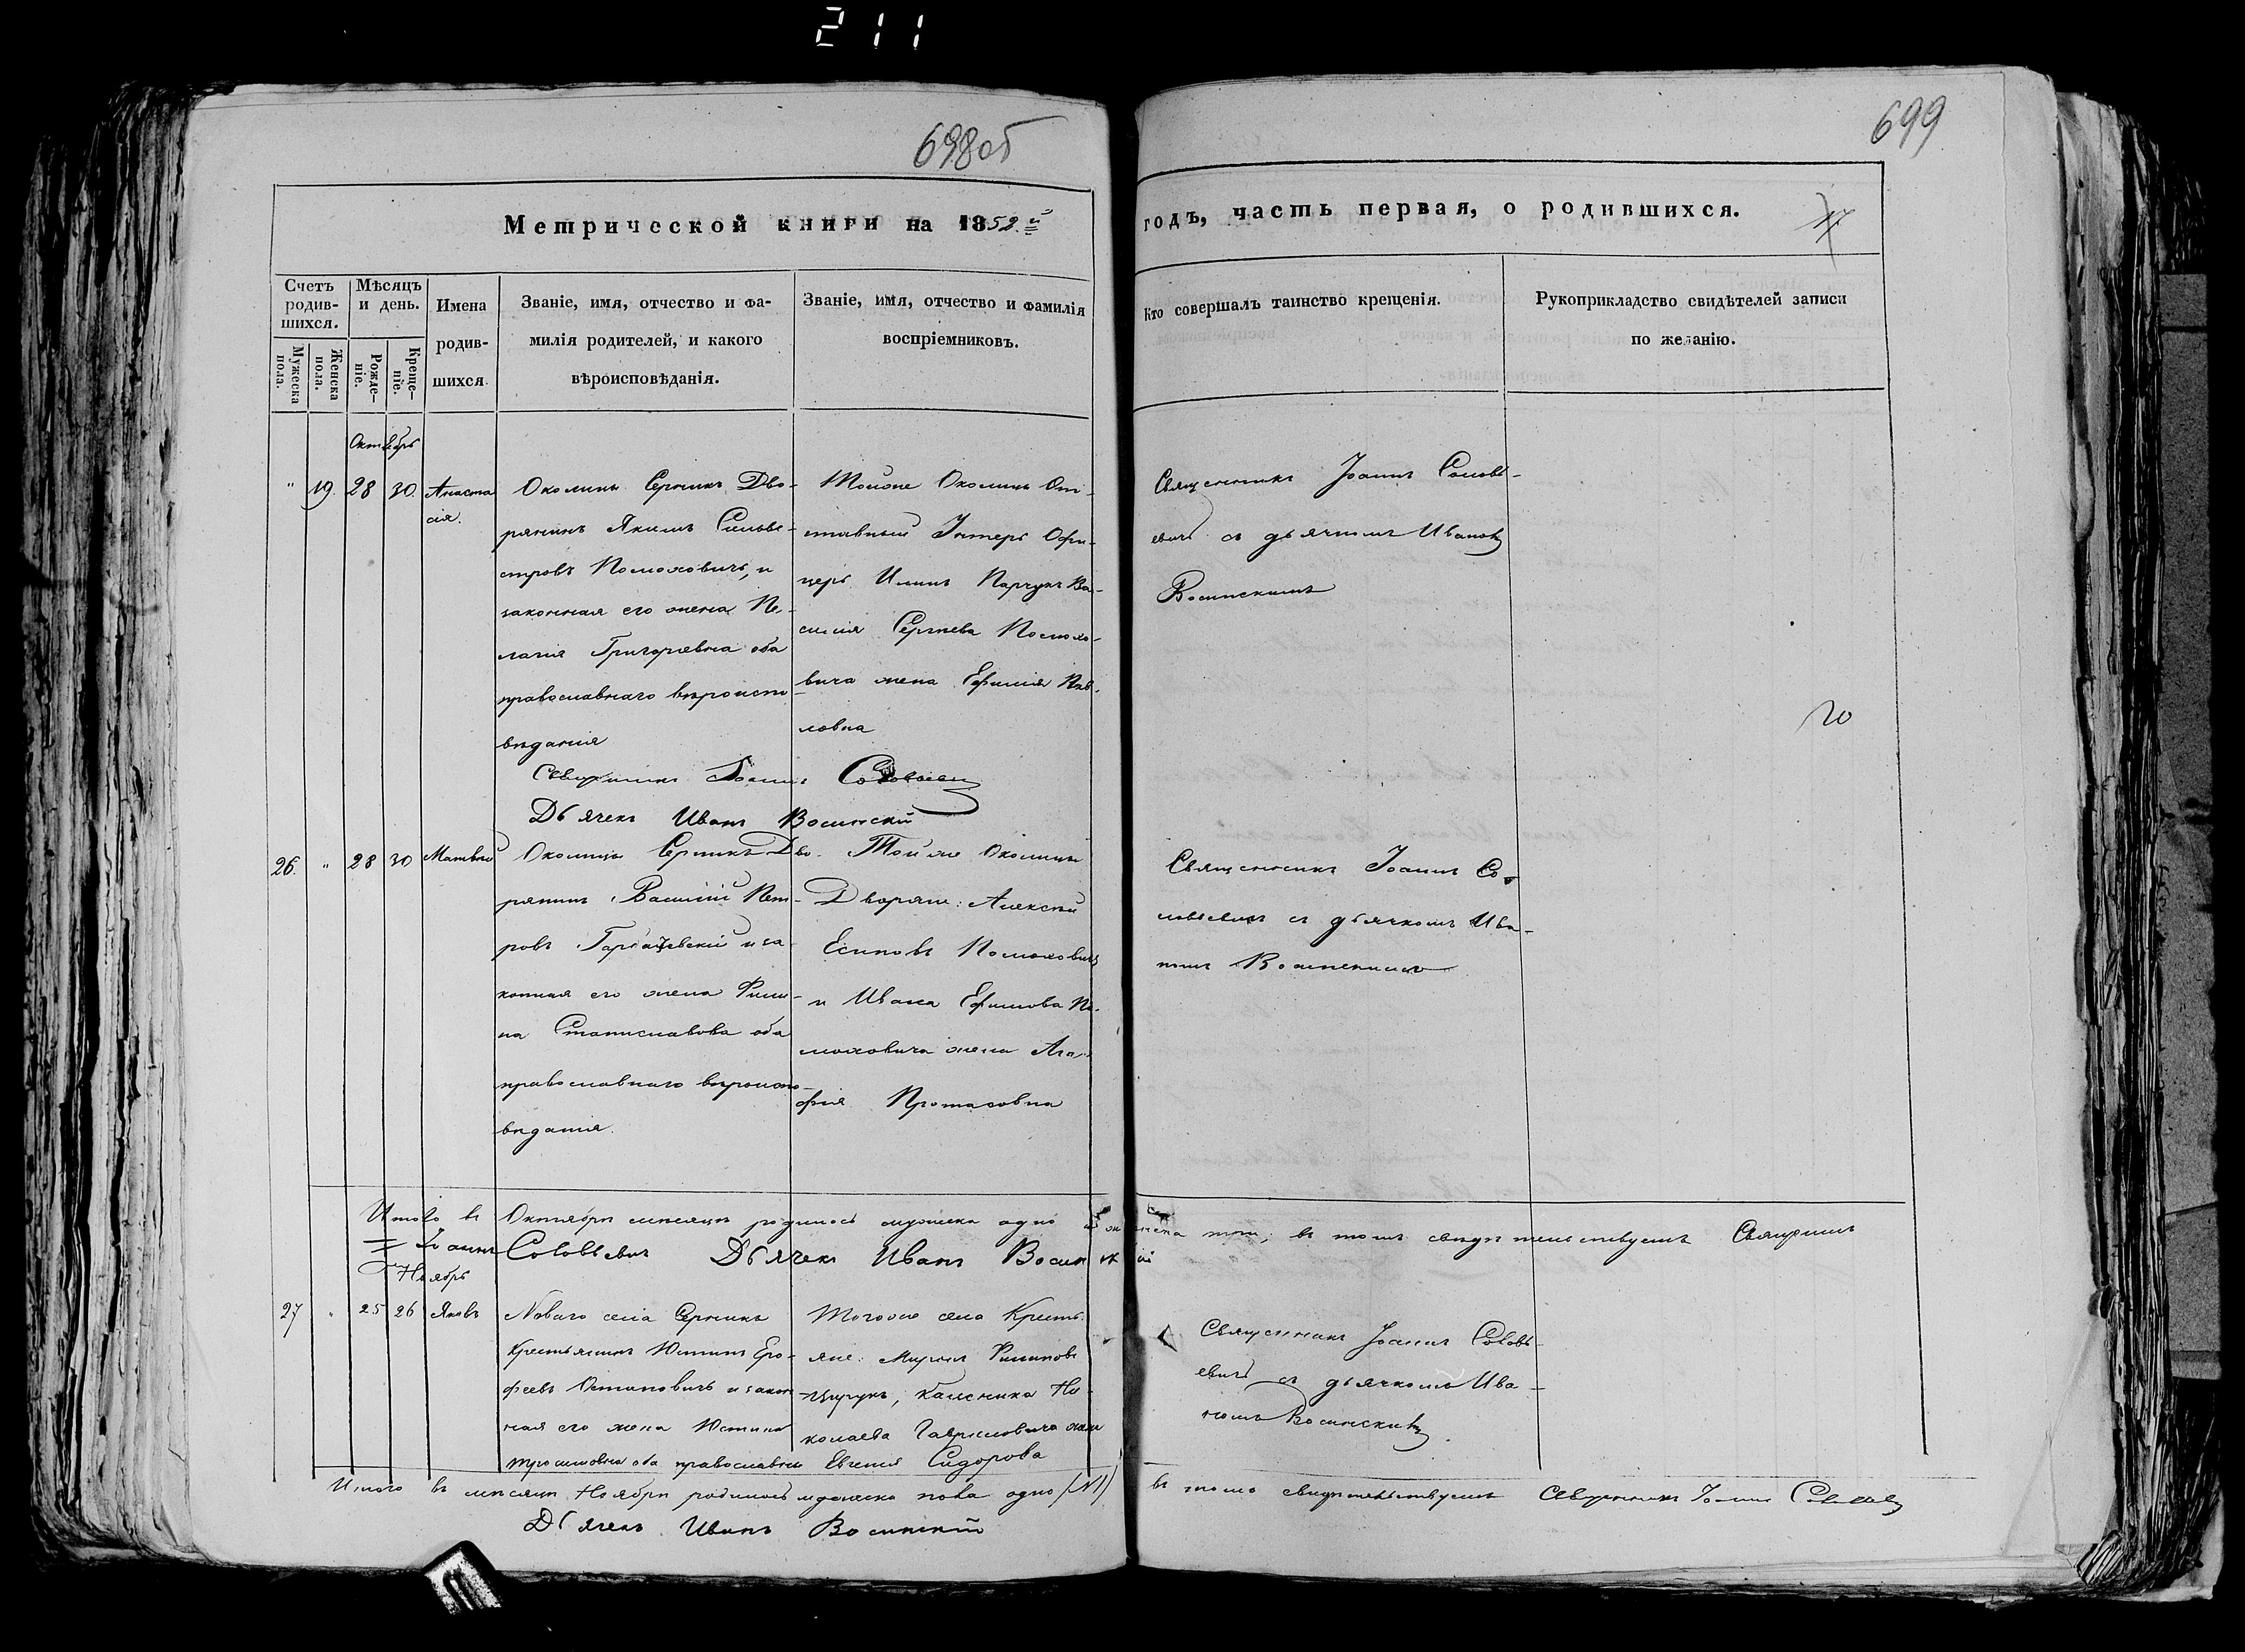 211
698об
699
Метрической книги на 1852.й
годъ, часть первая, о родившихся.
17
Счетъ родившихся.
Мужеска пола.
Женска пола.
Мѣсяцъ и день.
Рожде-ніе.
Креще-ніе.
Имена
родив-
шихся.
Званіе, имя, отчество и фа-
милія родителей, и какого
вѣроисповѣданія.
Званіе, имя, отчество и фамилія
воспріемниковъ.
Кто совершалъ таинство крещенія.
Рукоприкладство свидѣтелей записи
по желанію.
Октябрь
" 19. 28 30. Анаста
сія.
Околицы Серникъ Дво-
рянинъ Якимъ Сильве-
стровъ Полюховичъ, и
законная его жена Пе-
лагія Григорьевна оба
православнаго вѣроиспо
вѣданія
Тойже Околицы От-
ставный Унтеръ Офи-
церъ
силія Сергѣева Полюхо-
вича жена Ефимія Пав-
ловна
Священникъ Іоаннъ Соловь-
евичъ съ дьячкомъ Иваномъ
Восинскимъ
20
Священникъ Іоаннъ Соловьевичъ
Дьячекъ Иванъ Восинскій
26. " 28 30 Матвѣй
Околицы Серникъ Дво-
рянинъ Василій Пет-
ровъ и за
конная его жена
на Станиславова оба
православнаго вѣроиспо-
вѣданія.
Тойже Околицы
Дворяне: Алексѣй
Есиповъ Полюховичъ
и Ивана Ефимова По-
люховича жена Ага-
фія Протасовна
Священникъ Іоаннъ Со-
ловьевичъ съ дьячкомъ Ива-
номъ Восинскимъ
Итого въ Октябрѣ мѣсяцѣ родилось мужеска одно и женска три, въ томъ свидѣтельствуемъ Священникъ
Іоаннъ Соловьевичъ Дьячекъ Иванъ Восинскій
Ноябрь
27 " 25 26 Яковъ
Новаго села Серникъ
Крестьянинъ Юстинъ Еро-
феевъ Остаповичъ и закон
ная его жена Юстина
оба православны
Тогоже села Кресть-
яне: Филиповъ
Ни-
колаева Гавриловича жена
Евгенія Сидорова
Священникъ Іоаннъ Соловь-
евичъ съ дьячкомъ Ива-
номъ Восинскимъ
Итого въ мѣсяцѣ Ноябрѣ родилось мужеска пола одно (№1) въ томъ свидѣтельствуемъ Священникъ Іоаннъ Соловьевичъ
Дьячекъ Иванъ Восинскій